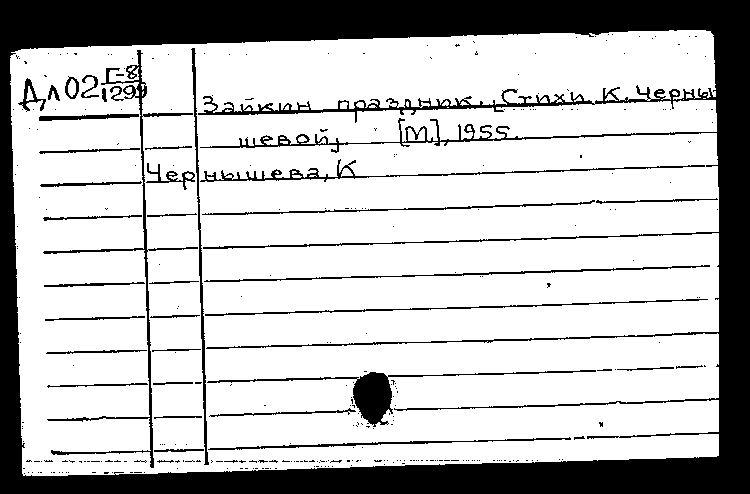 Дл 02 Г-8/1299
Зайкин праздник. [Стихи К. Черны
шевой]. [М.], 1955.
Чернышева, К